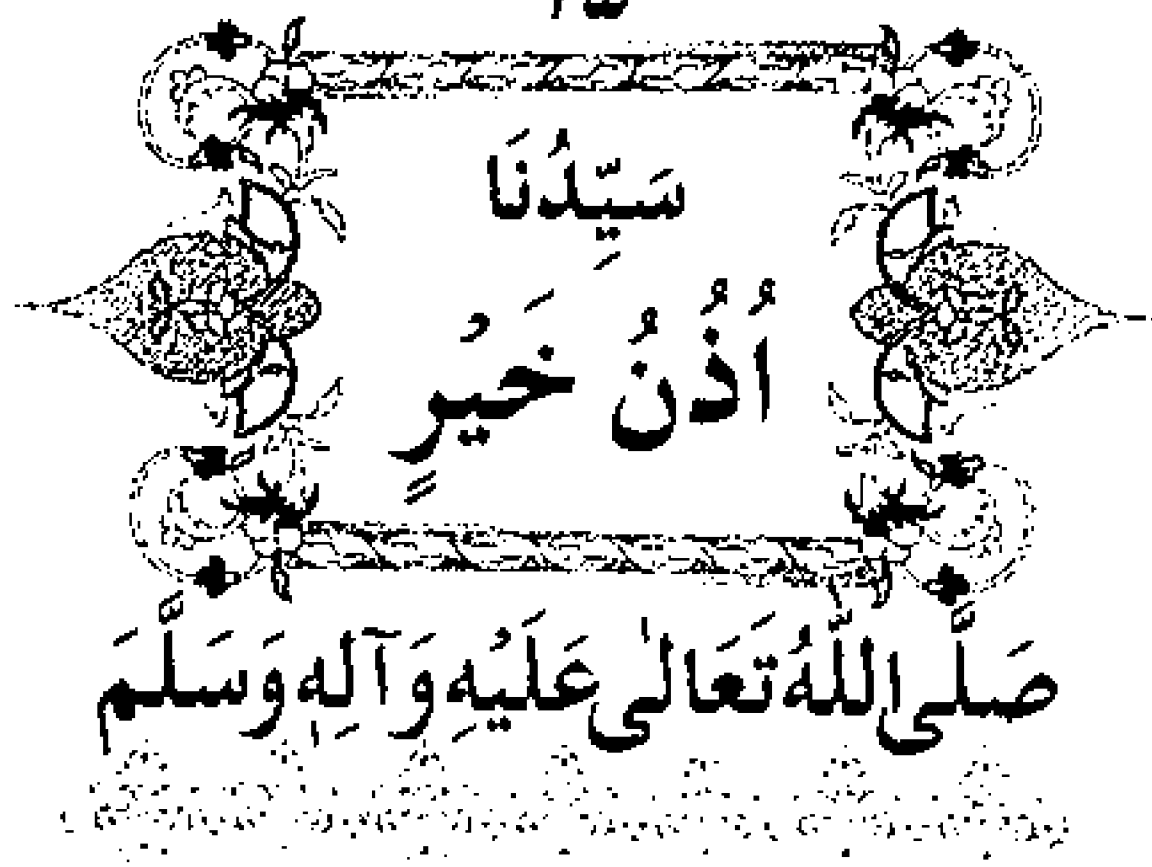 سَیِّدُنَا
اُذُنُ خَیْرٍ
صَلَّی اللّٰهُ تَعَالٰی عَلَیْهِ وَآلِهٖ وَسَلَّمَ